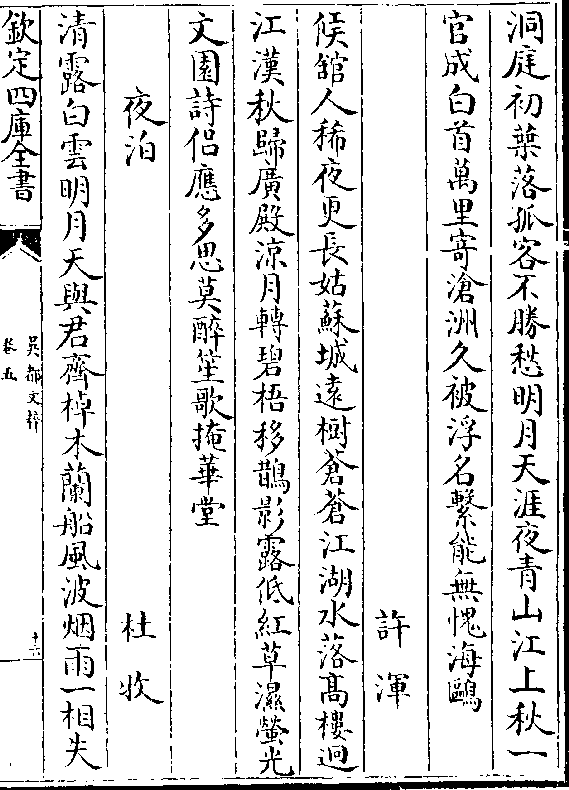 洞庭初葉落孤客不勝愁明月天涯夜青山江上秋一
官成白首萬里寄滄洲久被浮名繫能無愧海鷗
許渾
候舘人稀夜更長姑蘇城遠樹蒼蒼江湖水落高樓迥
江漢秋歸廣殿涼月轉碧梧移鵲影露低紅草濕螢光
文園詩侣應多思莫醉笙歌掩華堂
夜泊 杜牧
清露白雲明月天與君齊棹木蘭船風波烟雨一相失
欽定四庫全書
吳都文粹
卷五
十六